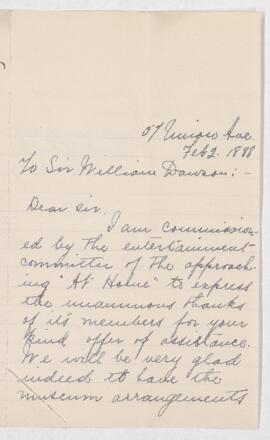 57 Union Ave.
Feb 2. 1888
To Sir William Dawson:-
Dear sir.
I am commission-
ed by the entertainment
committee of the approach-
ing "At Home" to express
the unanimous thanks
of its members for your
kind offer of assistance.
We will be very glad
indeed to have the
museum arrangements